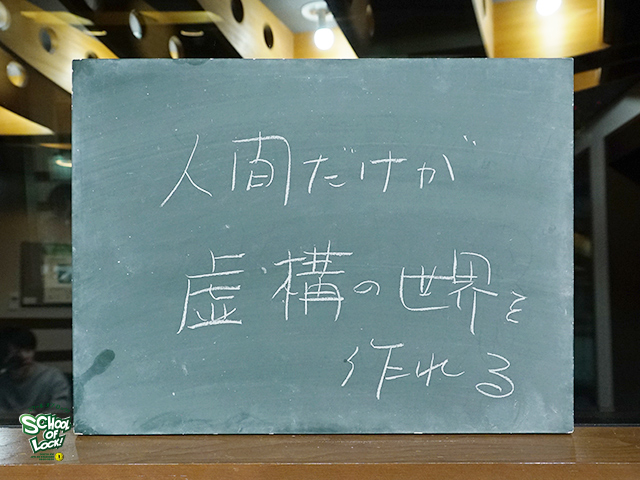 人間だけが
虚構の世界を
作れる
SCHOOL
OF
LOCK!